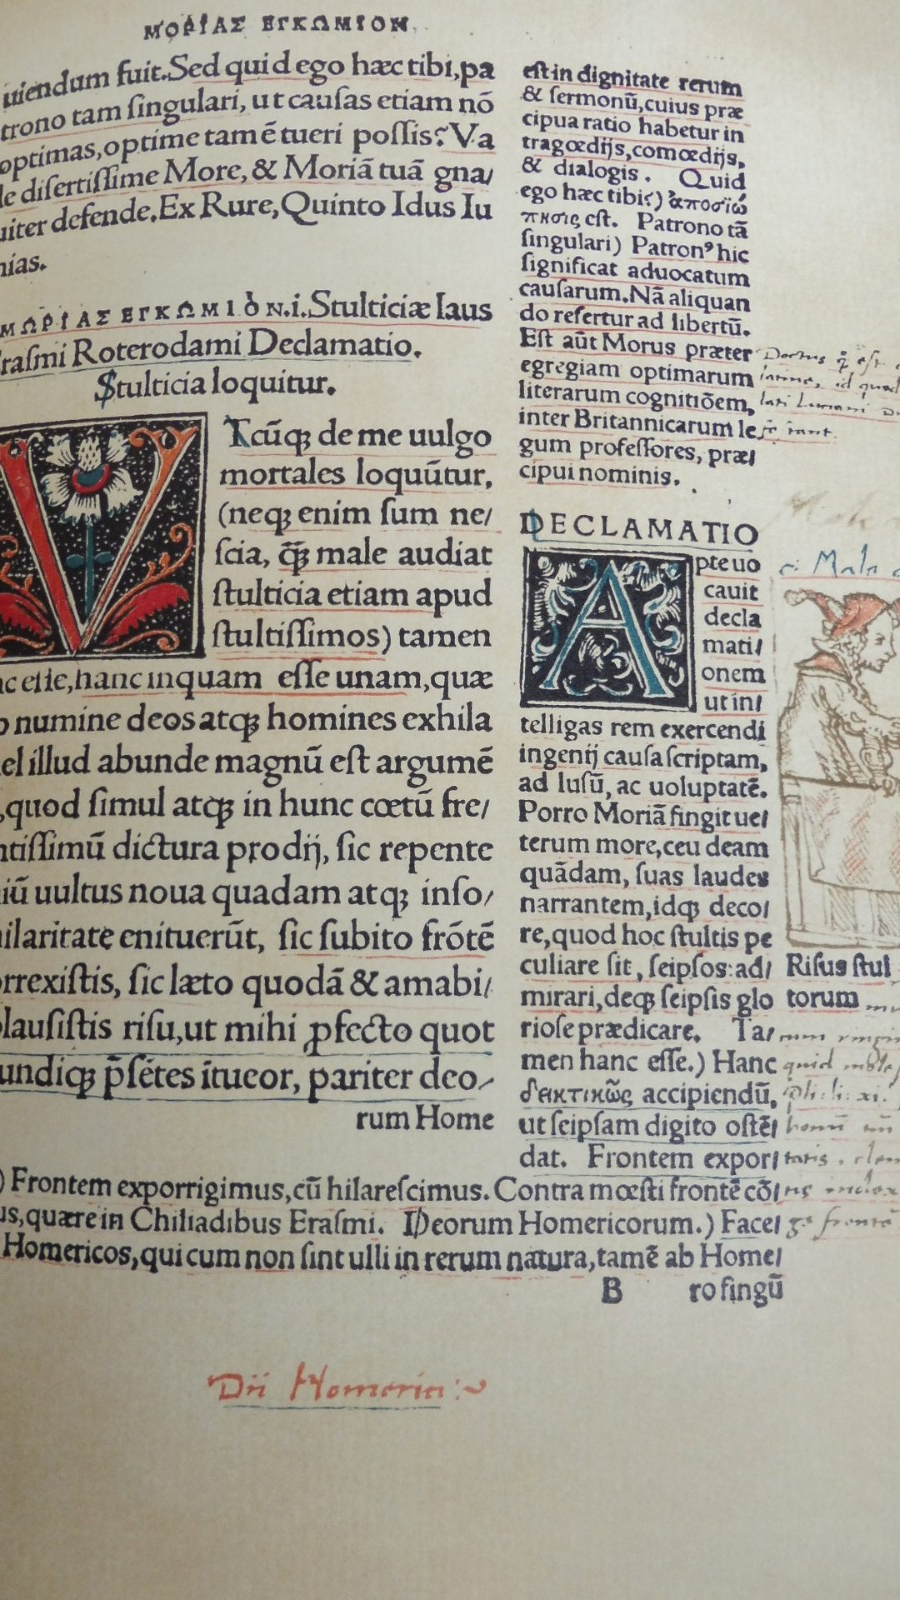 ΜΟΡΙΑΣ ΕΓΚΩΜΙΟΝ.
uiendum fuit. Sed quid ego hæc tibi, pa
trono tam singulari, ut causas etiam nō
optimas, optime tamē tueri possis? Va
le disertissime More, & Moriā tuā gna/
uiter defende. Ex Rure, Quinto Idus Iu
nias.
ΜΩΡΙΑΣ ΕΓΚΩΜΙΟΝ.i. Stulticiæ laus
Erasmi Roterodami Declamatio.
Stulticia loquitur.
VTcūqꝫ de me uulgo
mortales loquūtur,
(neqꝫ enim sum ne/
scia, q̄ꝫ male audiat
stulticia etiam apud
stultissimos) tamen
nc esse, hanc inquam esse unam, quæ
o numine deos atqꝫ homines exhila
el illud abunde magnū est argumē
, quod simul atqꝫ in hunc cœtū fre/
ntissimū dictura prodij, sic repente
niū uultus noua quadam atqꝫ inso/
hilaritate enituerūt, sic subito frōtē
orrexistis, sic læto quodā & amabi/
plausistis risu, ut mihi ꝓfecto quot
undiqꝫ p̄sētes ītueor, pariter deo/
rum Home
est in dignitate rerum
& sermonū, cuius præ
cipua ratio habetur in
tragœdijs, comœdijs,
& dialogis. Quid
ego hæc tibi?) ἀποσιώ
πησις est. Patrono tā
singulari) Patronꝰ hic
significat aduocatum
causarum. Nā aliquan
do refertur ad libertū.
Est aūt Morus præter
egregiam optimarum
literarum cognitiōem,
inter Britannicarum le
gum professores, præ/
cipui nominis.
DECLAMATIO
Apte uo
cauit
decla
mati/
onem
ut in/
telligas rem exercendi
ingenij causa scriptam,
ad lusū, ac uoluptatē.
Porro Moriā fingit ue/
terum more, ceu deam
quādam, suas laudes
narrantem, idqꝫ deco/
re, quod hoc stultis pe
culiare sit, seipsos ad/
mirari, deqꝫ seipsis glo
riose prædicare. Ta/
men hanc esse.) Hanc
δεικτικῶς accipiendū,
ut seipsam digito ostē/
dat. Frontem expor/
) Frontem exporrigimus, cū hilarescimus. Contra mœsti frontē cō/
us, quære in Chiliadibus Erasmi. Deorum Homericorum.) Face/
Homericos, qui cum non sint ulli in rerum natura, tamē ab Home/
B ro fingū
Risus stul
torum
Dii Homerici